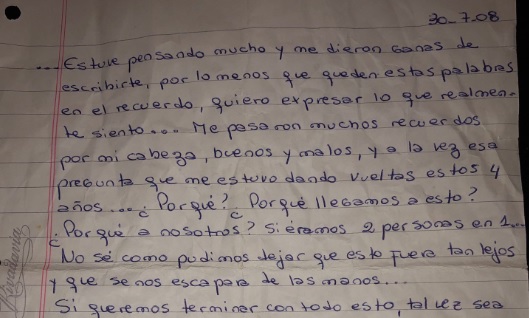 30-7-08
... Estuve pensando mucho y me dieron ganas de
escribirte, por lo menos que queden estas palabras
en el recuerdo, quiero expresar lo que realmen-
te siento.... Me pasaron muchos recuerdos
por mi cabeza, buenos y malos, y a la vez esa
pregunta que me estuvo dando vueltas estos 4
años....¿Porqué? ¿Porqué llegamos a esto?
¿Porqué a nosotros? Si eramos 2 personas en 1....
No sé como pudimos dejar que esto fuera tan lejos
y que se nos escapara de las manos...
Si queremos terminar con todo esto, tal vez sea
Rivadavia